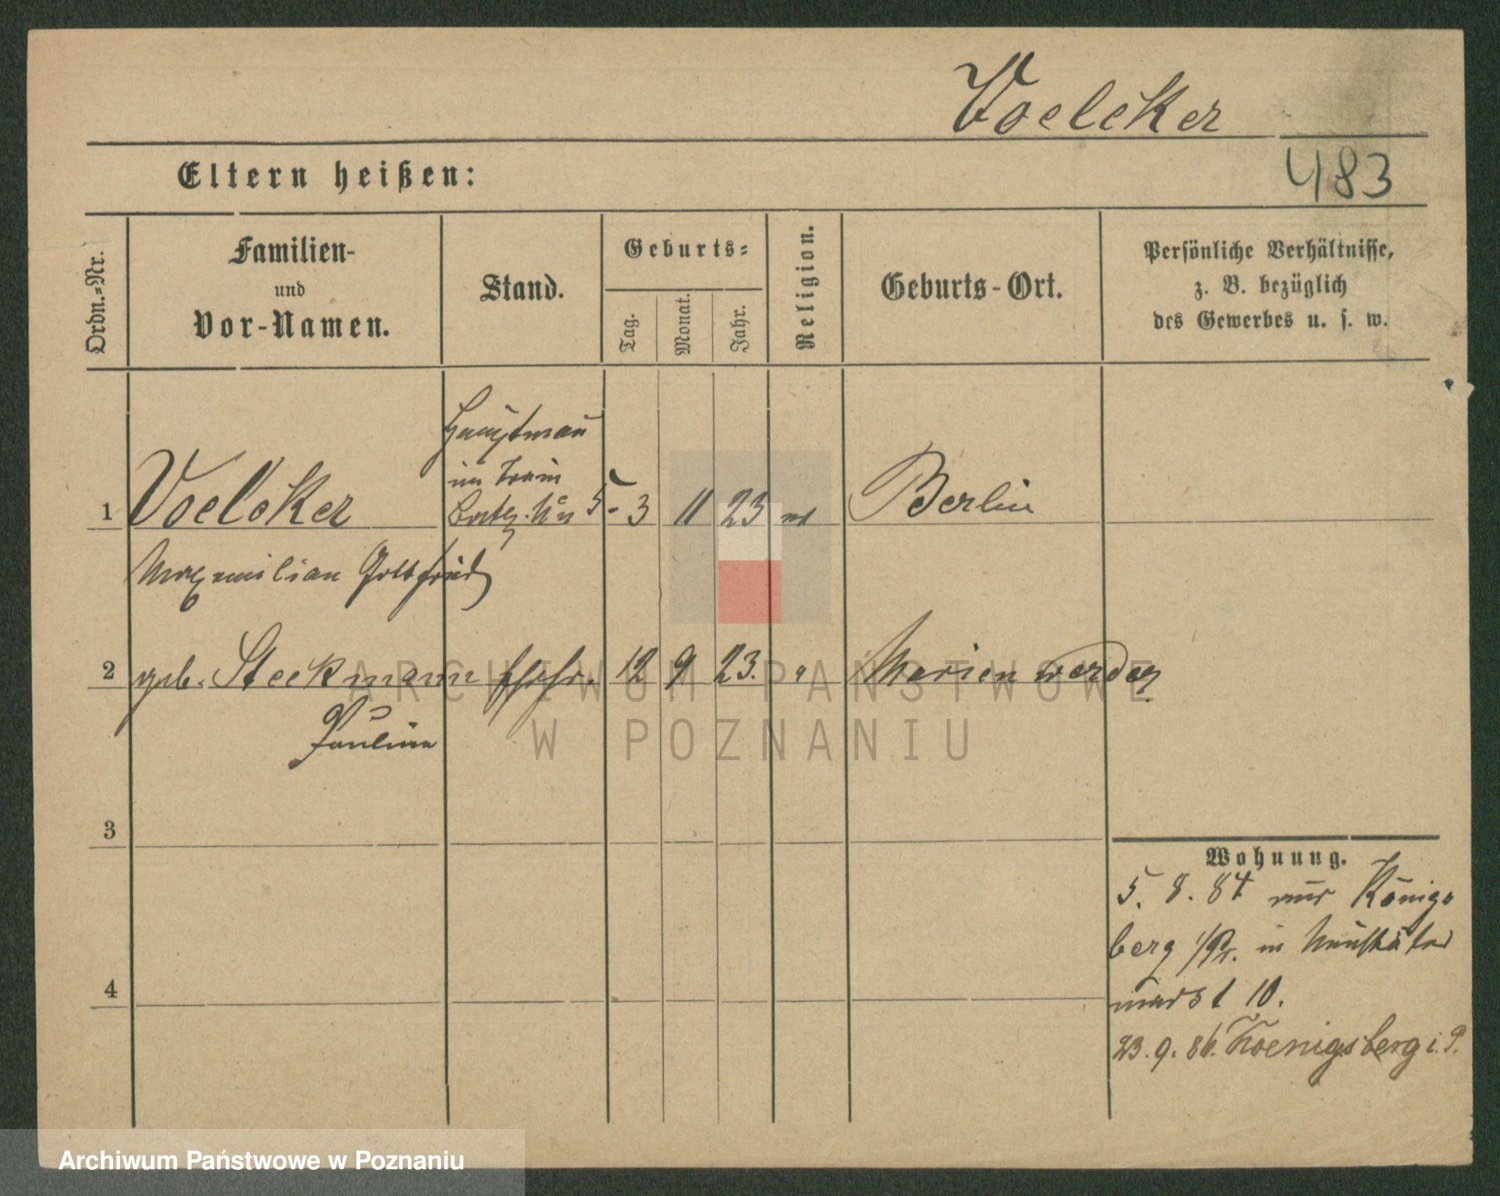 Voelcker
483
Eltern heißen:
Ordn.-Nr.
Familien-
und
Vor-Namen.
Stand.
Geburts-
Tag.
Monat.
Jahr.
Religion.
Geburts-Ort.
Persönliche Verhältnisse,
z. B. bezüglich
des Gewerbes u. s. w.
Hauptman
im Train
1 Voelcker Batl. No 5 - 3 11 23 Berlin
Maximilian Gottfried
2 geb. Steckmann 12 9 23. " Marienwerder
Pauline
3
4
Wohnung.
5. 8. 84 aus Königs
berg i/Pr. in
markt 10.
23. 9. 86. Koenigsberg i. P.
ARCHIWUM PAŃSTWOWE
W POZNANIU
Archiwum Państwowe w Poznaniu